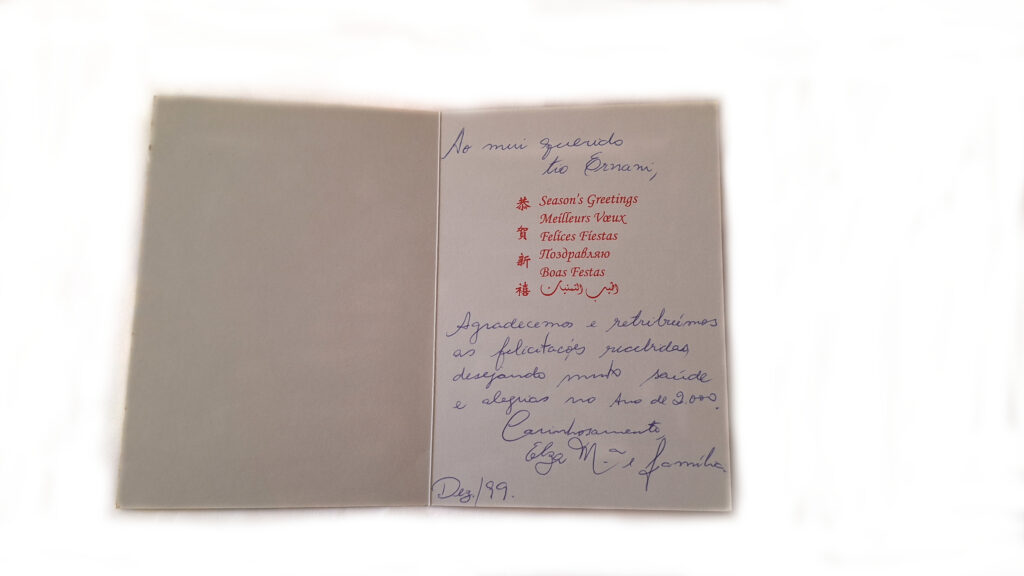 Ao mui querido
tio Ernani,
恭賀新禧
Season's Greetings
Meilleurs Vœux
Felices Fiestas
Поздравляю
Boas Festas
اطيب التمنيات
Agradecemos e retribuimos
as felicitações recebidas,
desejando muito saúde
e alegrias no Ano de 2.000.
Carinhosamente,
Elza Mª e família
Dez./99.